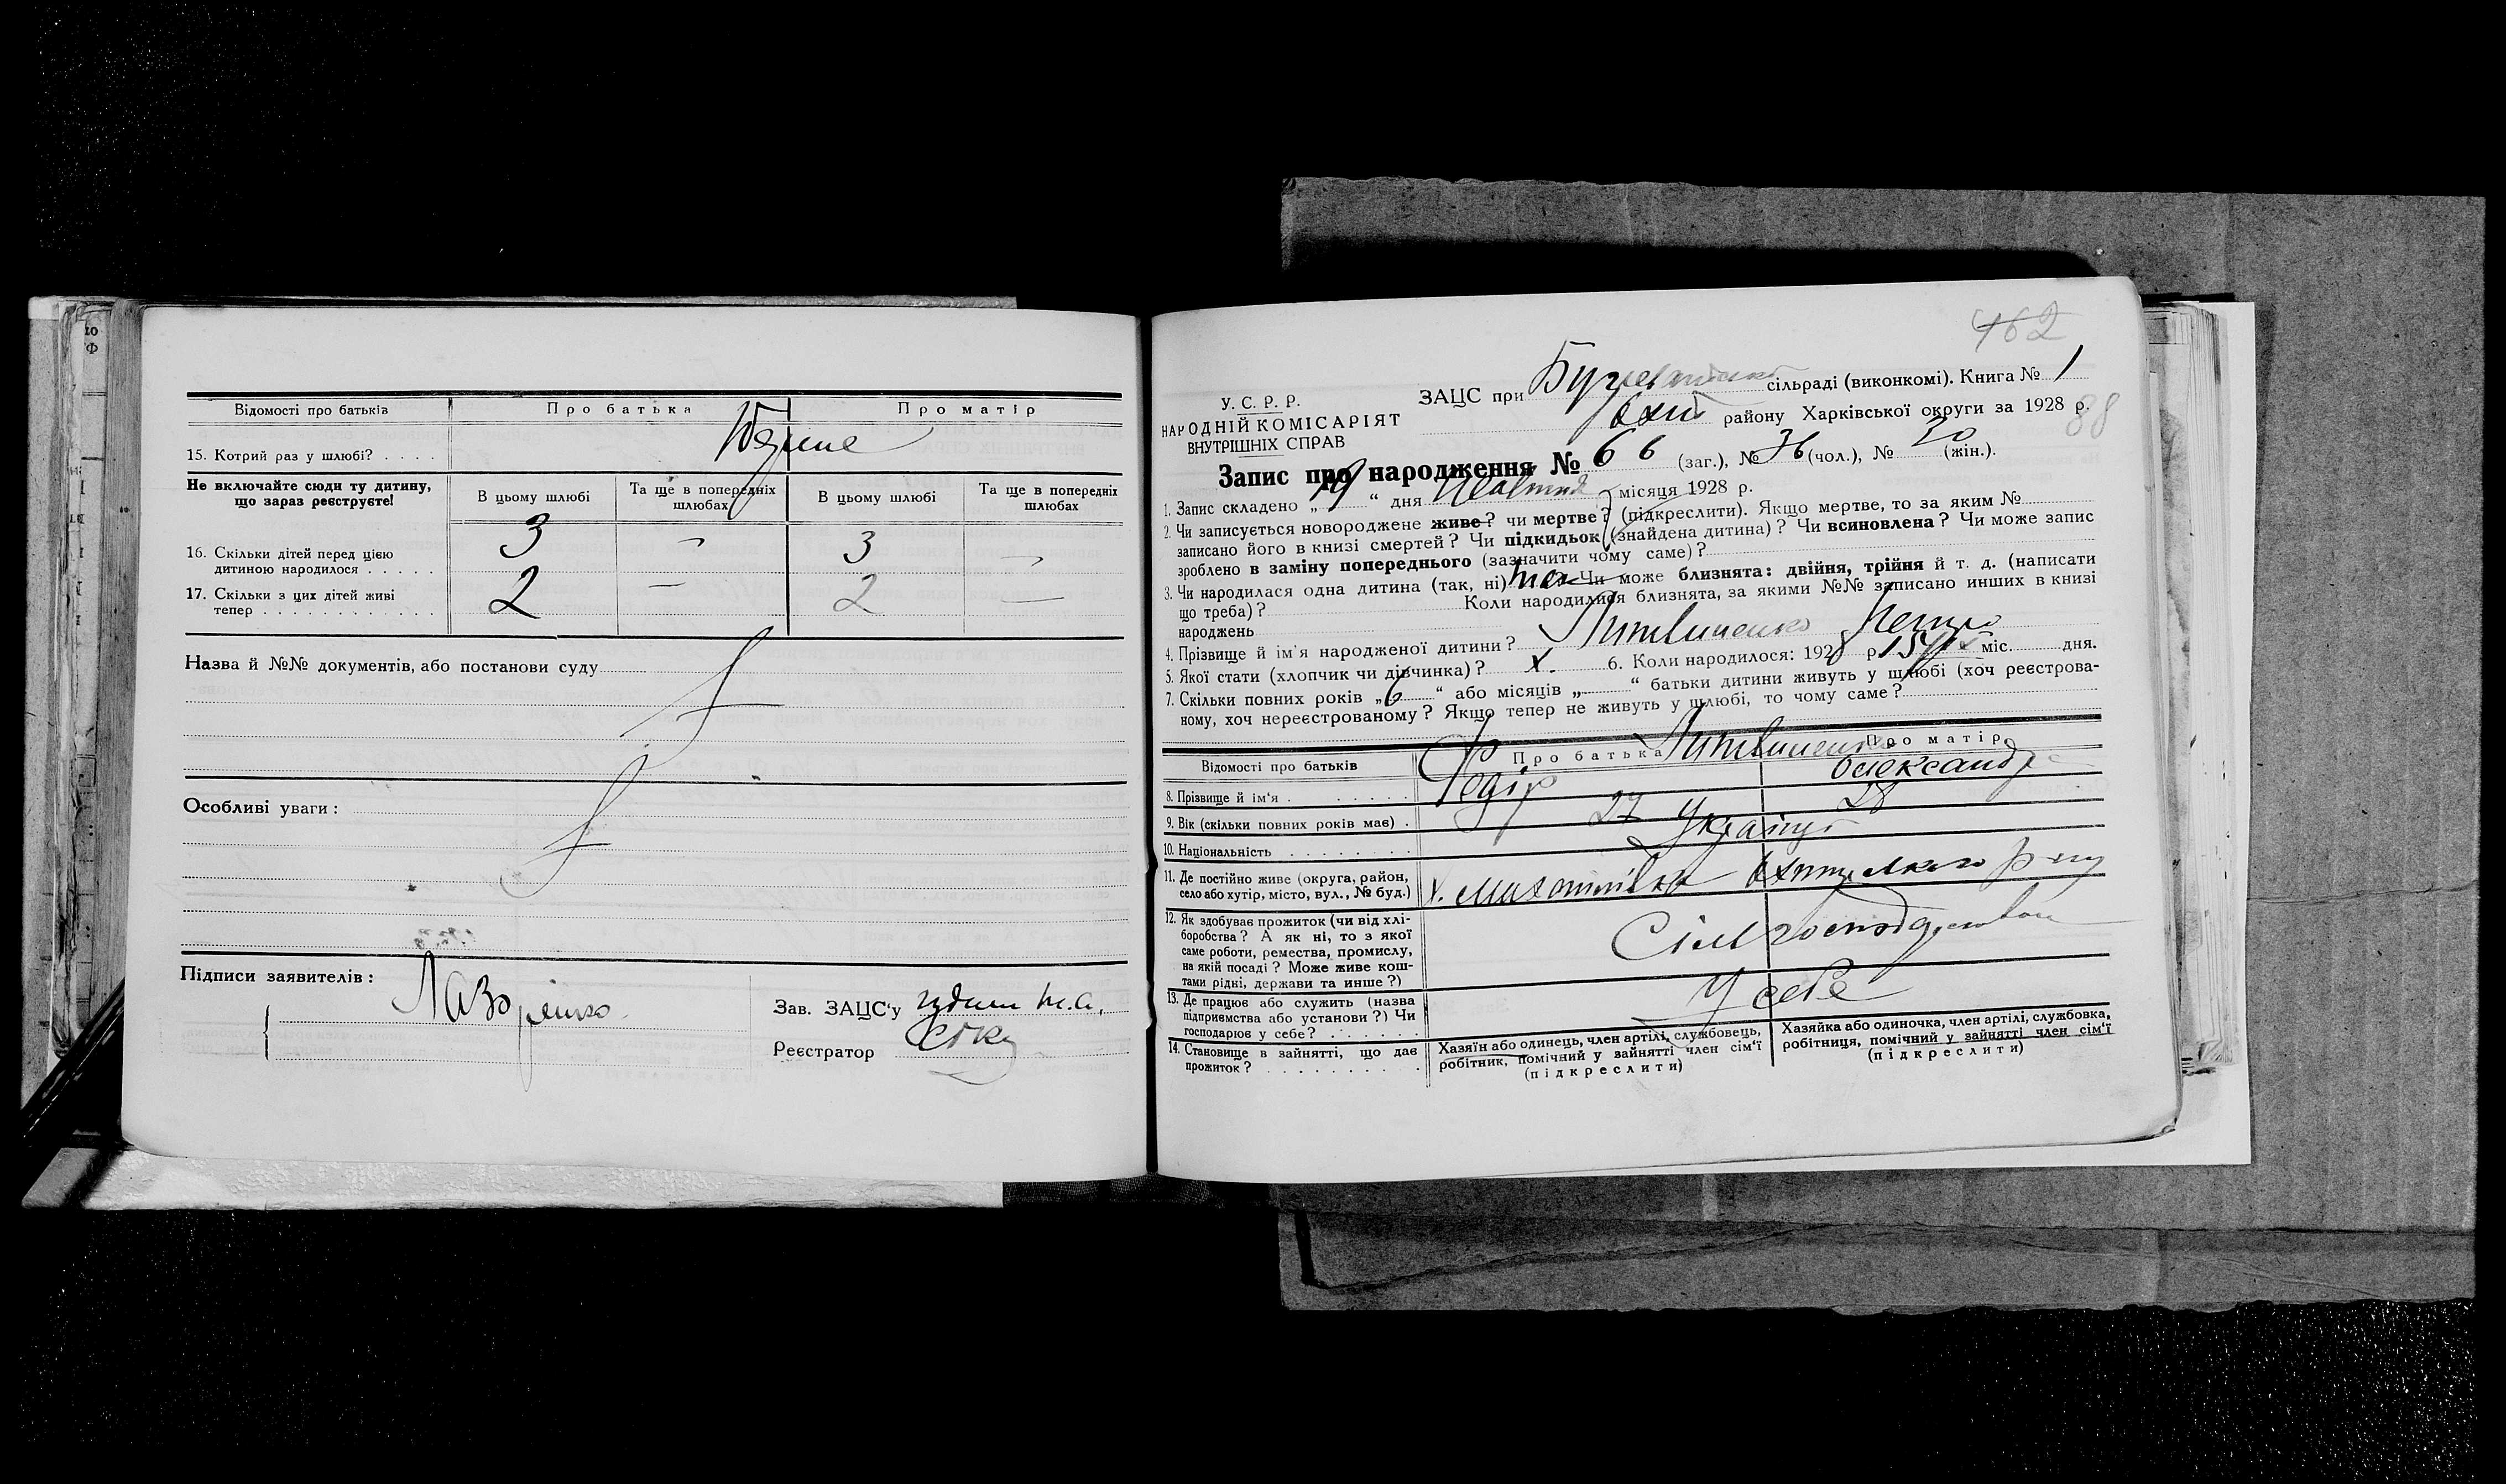 Відомості про батьків Про батька Про матір
15. Котрий раз у шлюбі? . . . .
Не включайте сюди ту дитину, що зараз реєструєте!
В цьому шлюбі Та ще в попередніх шлюбах В цьому шлюбі Та ще в попередніх шлюбах
16. Скільки дітей перед цією
дитиною народилося . . . . . 3 — 3 —
17. Скільки з цих дітей живі
тепер . . . . . . . . . . . . 2 — 2 —
Назва й №№ документів, або постанови суду
Особливі уваги:
Підписи заявителів:
Зав. ЗАЦС'у
Реєстратор
462
88
У. С. Р. Р.
НАРОДНІЙ КОМІСАРІЯТ
ВНУТРІШНІХ СПРАВ
ЗАЦС при сільраді (виконкомі). Книга № 1
району Харківської округи за 1928 р.
Запис про народження № 66 (заг.), № 36 (чол.), № 30 (жін.).
1. Запис складено „19“ дня місяця 1928 р.
2. Чи записується новороджене живе? чи мертве? (підкреслити). Якщо мертве, то за яким №
записано його в книзі смертей? Чи підкидьок (знайдена дитина)? Чи всиновлена? Чи може запис
зроблено в заміну попереднього (зазначити чому саме)?
3. Чи народилася одна дитина (так, ні) так Чи може близнята: двійня, трійня й т. д. (написати
що треба)? Коли народилися близнята, за якими №№ записано инших в книзі
народжень
4. Прізвище й ім'я народженої дитини? Литвиненко Петро
5. Якої стати (хлопчик чи дівчинка)? х. 6. Коли народилося: 1928 р. міс. дня.
7. Скільки повних років „6“ або місяців „ “ батьки дитини живуть у шлюбі (хоч реєстрова-
ному, хоч нереєстрованому? Якщо тепер не живуть у шлюбі, то чому саме?
Відомості про батьків Про батька Про матір
Литвиненко
8. Прізвище й ім'я . . . . . . Федір Олександра
9. Вік (скільки повних років має) . 27 28
10. Національність . . . . . . . . Українці
11. Де постійно живе (округа, район,
село або хутір, місто, вул., № буд.) х.
12. Як здобуває прожиток (чи від хлі-
боробства? А як ні, то з якої
саме роботи, ремества, промислу,
на якій посаді? Може живе кош-
тами рідні, держави та инше?)
13. Де працює або служить (назва
підприємства або установи?) Чи
господарює у себе? . . . . . . У себе
14. Становище в зайнятті, що дає
прожиток? . . . . . . . . . .
Хазяїн або одинець, член артілі, службовець,
робітник, помічний у зайнятті член сім'ї
(підкреслити)
Хазяйка або одиночка, член артілі, службовка,
робітниця, помічний у зайнятті член сім'ї
(підкреслити)